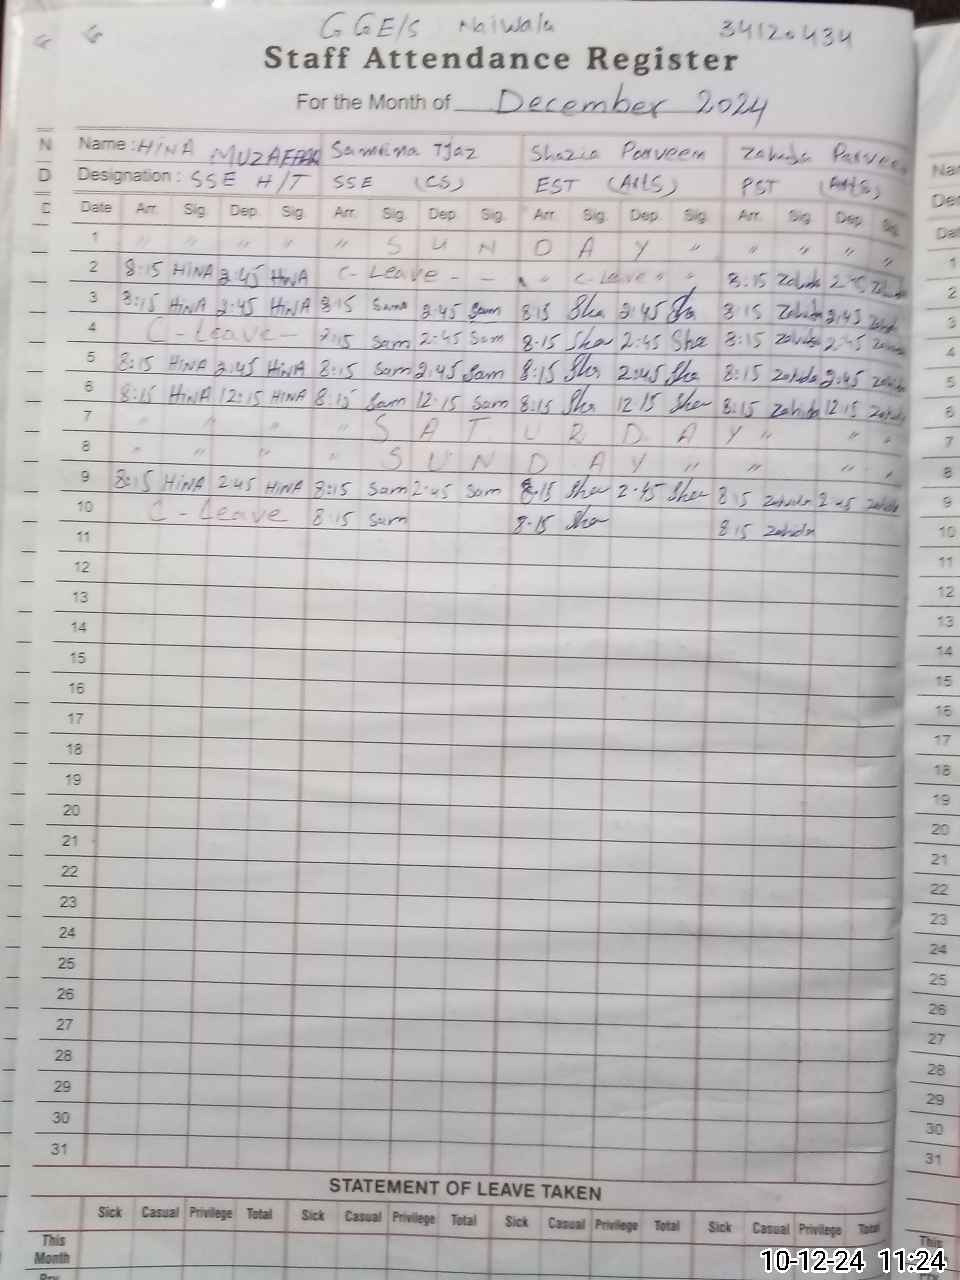 GGE/S Naiwala 34120434
Staff Attendance Register
For the Month of December 2024
Name: HINA MUZAFFAR Samina Ijaz Shazia Parveen Zahida Parveen
Designation: SSE H/T SSE (CS) EST (Arts) PST (Arts)
Date Arr. Sig. Dep. Sig. Arr. Sig. Dep. Sig. Arr. Sig. Dep. Sig. Arr. Sig. Dep. Sig.
1 " " " " " S U N D A Y " " " " "
2 8:15 HINA 2:45 HINA C-Leave - - " C-Leave " " 8:15 Zahida 2:45 Zahida
3 8:15 HINA 2:45 HINA 8:15 Sam 2:45 Sam 8:15 Sha 2:45 Sha 8:15 Zahida 2:45 Zahida
4 C-Leave- 8:15 Sam 2:45 Sam 8:15 Sha 2:45 Sha 8:15 Zahida 2:45 Zahida
5 8:15 HINA 2:45 HINA 8:15 Sam 2:45 Sam 8:15 Sha 2:45 Sha 8:15 Zahida 2:45 Zahida
6 8:15 HINA 12:15 HINA 8:15 Sam 12:15 Sam 8:15 Sha 12:15 Sha 8:15 Zahida 12:15 Zahida
7 " " " " S A T U R D A Y " " "
8 " " " " S U N D A Y " " " "
9 8:15 HINA 2:45 HINA 8:15 Sam 2:45 Sam 8:15 Sha 2:45 Sha 8:15 Zahida 2:45 Zahida
10 C-Leave 8:15 Sam 8:15 Sha 8:15 Zahida
11
12
13
14
15
16
17
18
19
20
21
22
23
24
25
26
27
28
29
30
31
STATEMENT OF LEAVE TAKEN
Sick Casual Privilege Total Sick Casual Privilege Total Sick Casual Privilege Total Sick Casual Privilege Total
This Month
10-12-24 11:24